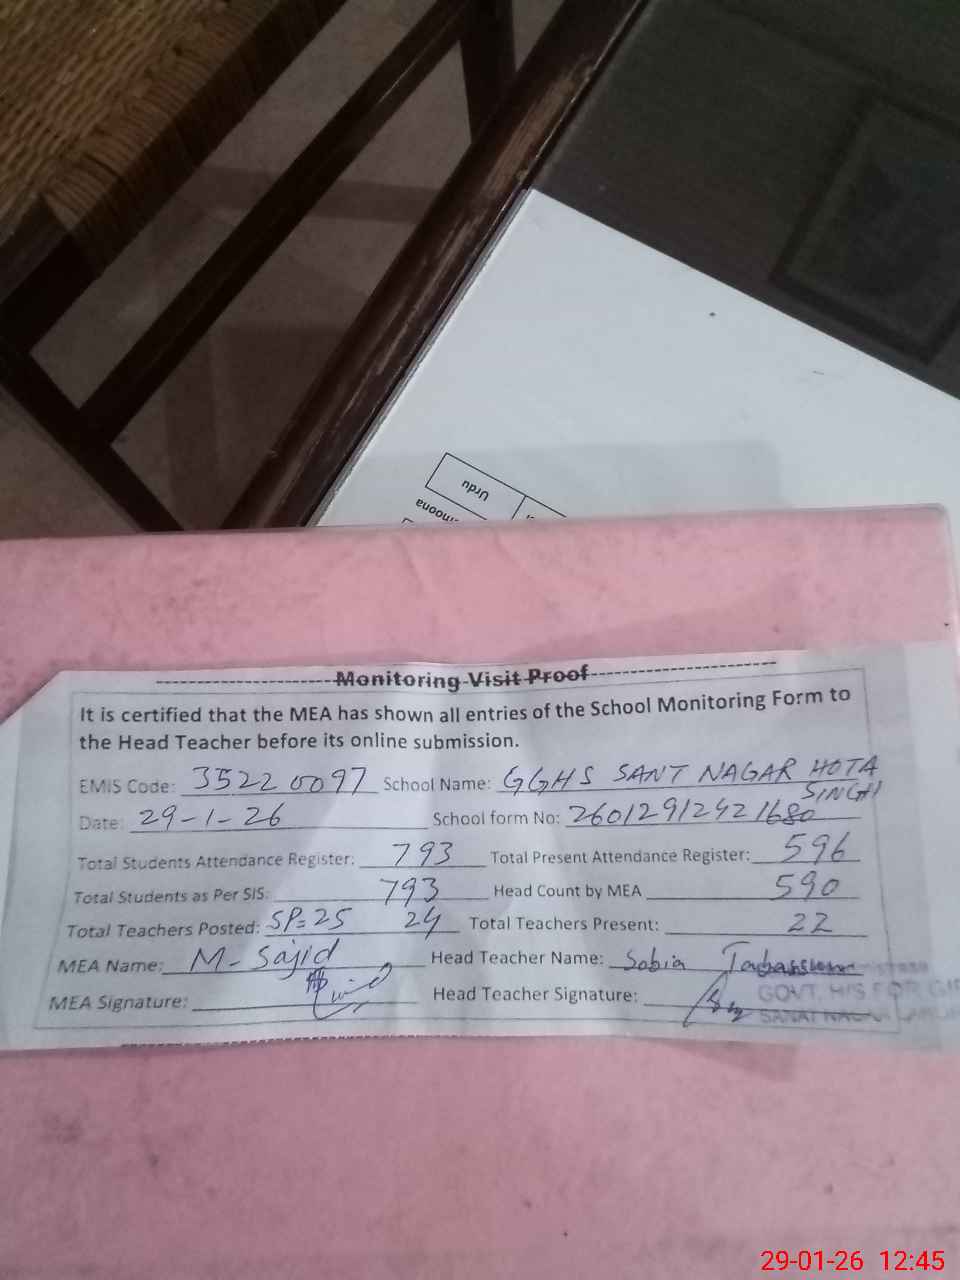 Urdu
Monitoring Visit Proof
It is certified that the MEA has shown all entries of the School Monitoring Form to
the Head Teacher before its online submission.
EMIS Code: 35220097 School Name: GGHS SANT NAGAR HOTA
SINGH
Date: 29-1-26 School form No: 26012912421680
Total Students Attendance Register: 793 Total Present Attendance Register: 596
Total Students as Per SIS: 793 Head Count by MEA 590
Total Teachers Posted: SP=25 24 Total Teachers Present: 22
MEA Name: M-Sajid Head Teacher Name: Sobia Tabassum
MEA Signature: Head Teacher Signature:
GOVT. H/S FOR
29-01-26 12:45